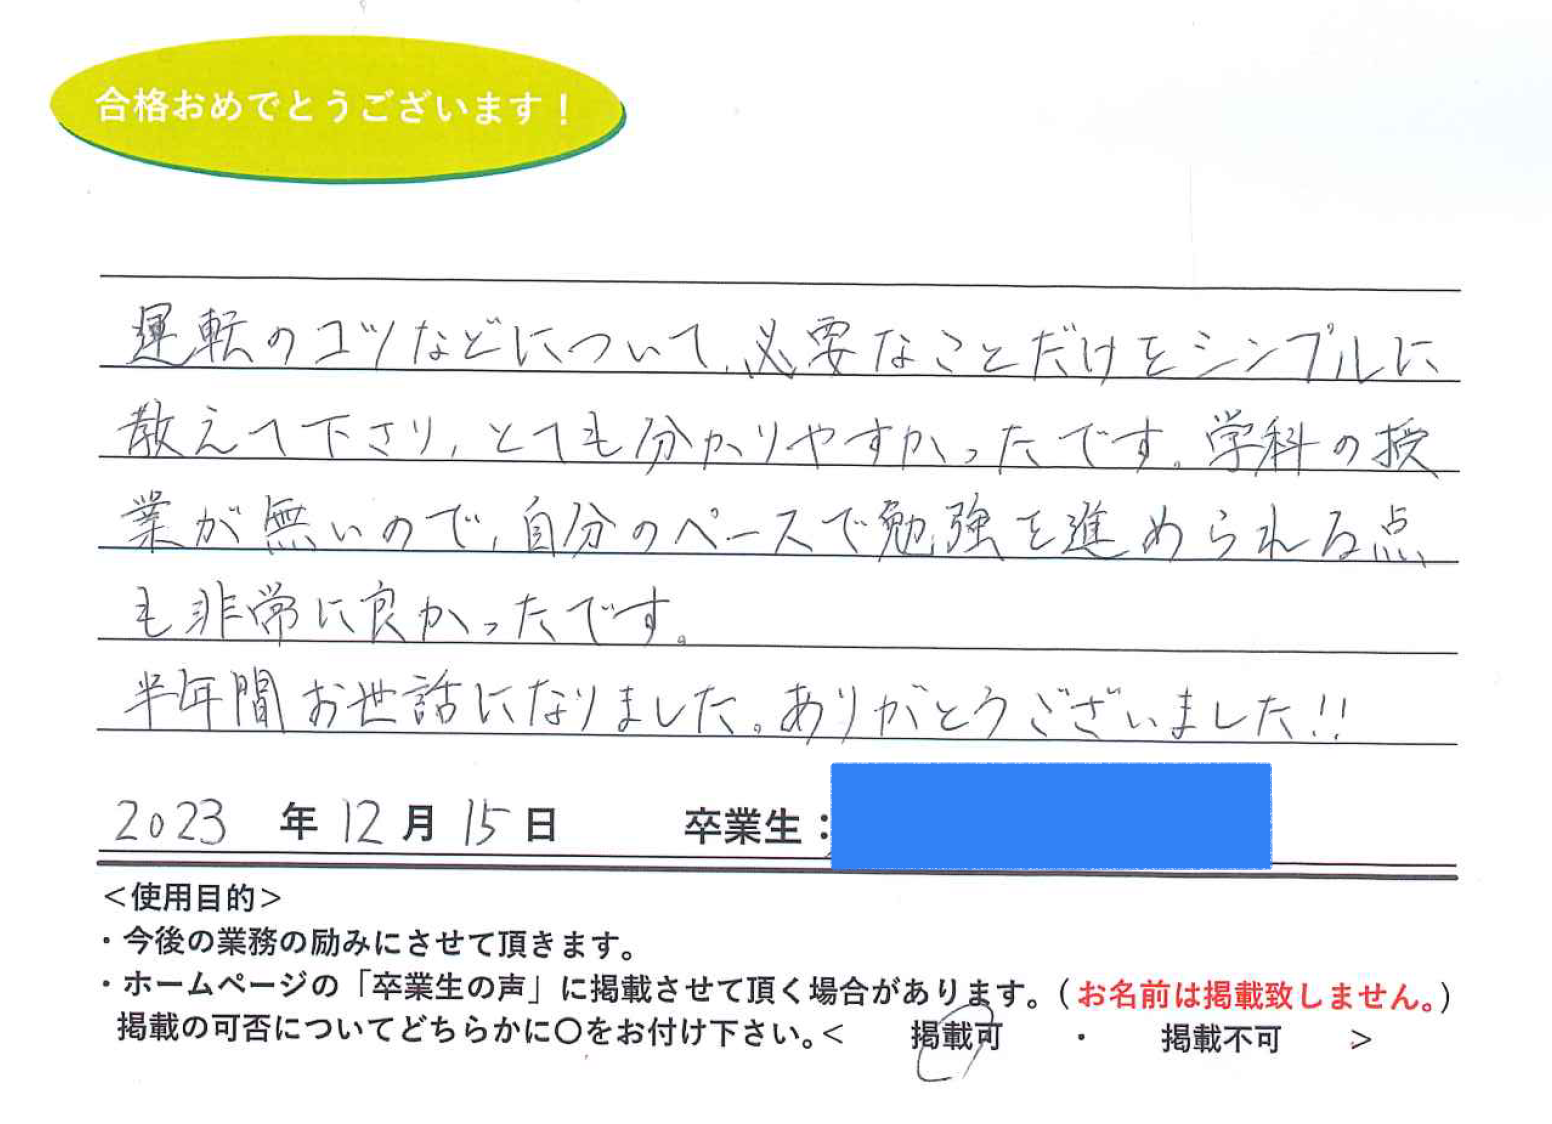 合格おめでとうございます！
運転のコツなどについて、必要なことだけをシンプルに
教えて下さり、とても分かりやすかったです。学科の授
業が無いので、自分のペースで勉強を進められる点
も非常に良かったです。
半年間お世話になりました。ありがとうございました!!
2023 年 12 月 15 日 卒業生：
＜使用目的＞
・今後の業務の励みにさせて頂きます。
・ホームページの「卒業生の声」に掲載させて頂く場合があります。（お名前は掲載致しません。）
掲載の可否についてどちらかに〇をお付け下さい。＜ 掲載可 ・ 掲載不可 ＞